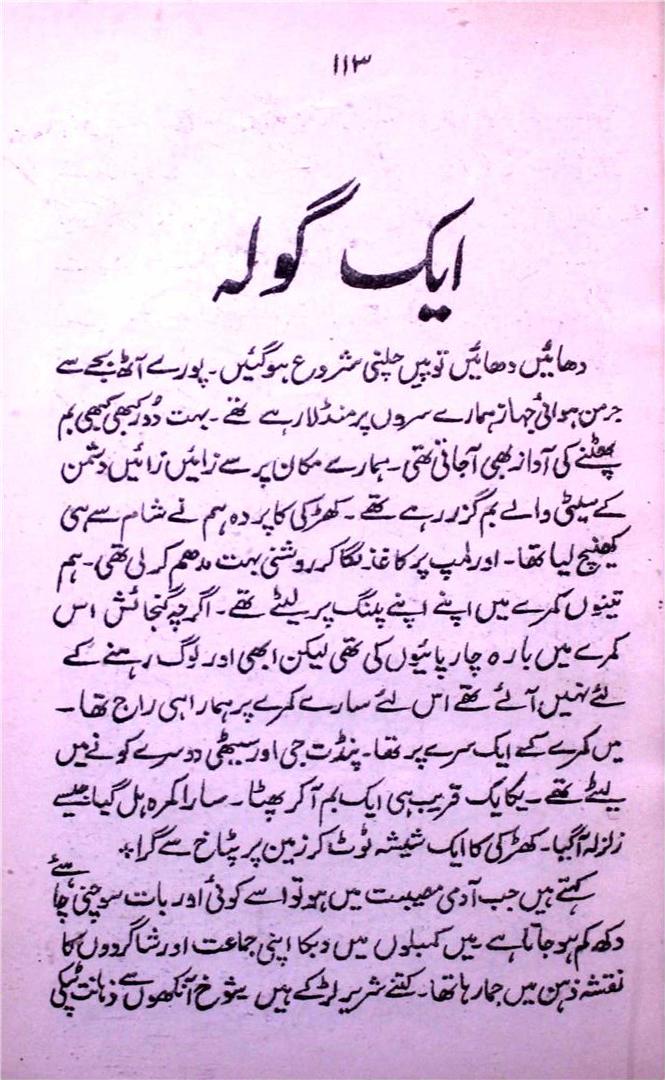 ۱۱۳
ایک گولہ
دھائیں دھائیں توپیں چلنی شروع ہوگئیں۔ پورے آٹھ بجے سے
جرمن ہوائی جہاز ہمارے سروں پر منڈلا رہے تھے۔ بہت دُور کبھی کبھی بم
پھٹنے کی آواز بھی آجاتی تھی۔ ہمارے مکان پر سے زائیں زائیں دشمن
کے سیٹی والے بم گزر رہے تھے۔ کھڑکی کا پردہ ہم نے شام سے ہی
کھینچ لیا تھا۔ اور لمپ پر کاغذ لگا کر روشنی بہت مدھم کر لی تھی۔ ہم
تینوں کمرے میں اپنے اپنے پلنگ پر لیٹے تھے۔ اگرچہ گنجائش اس
کمرے میں بارہ چارپائیوں کی تھی لیکن ابھی اور لوگ رہنے کے
لئے نہیں آئے تھے اس لئے سارے کمرے پر ہمارا ہی راج تھا۔
میں کمرے کے ایک سرے پر تھا۔ پنڈت جی اور سیٹھی دوسرے کونے میں
لیٹے تھے۔ یکایک قریب ہی ایک بم آکر پھٹا۔ سارا کمرہ ہل گیا جیسے
زلزلہ آگیا۔ کھڑکی کا ایک شیشہ ٹوٹ کر زمین پر پٹاخ سے گرا٭
کہتے ہیں جب آدمی مصیبت میں ہو تو اسے کوئی اور بات سوچنی چاہئے
دکھ کم ہو جاتا ہے میں کمبلوں میں دبکا اپنی جماعت اور شاگردوں کا
نقشہ ذہن میں جما رہا تھا۔ کتنے شریر لڑکے ہیں شوخ آنکھوں سے ذہانت ٹپکی